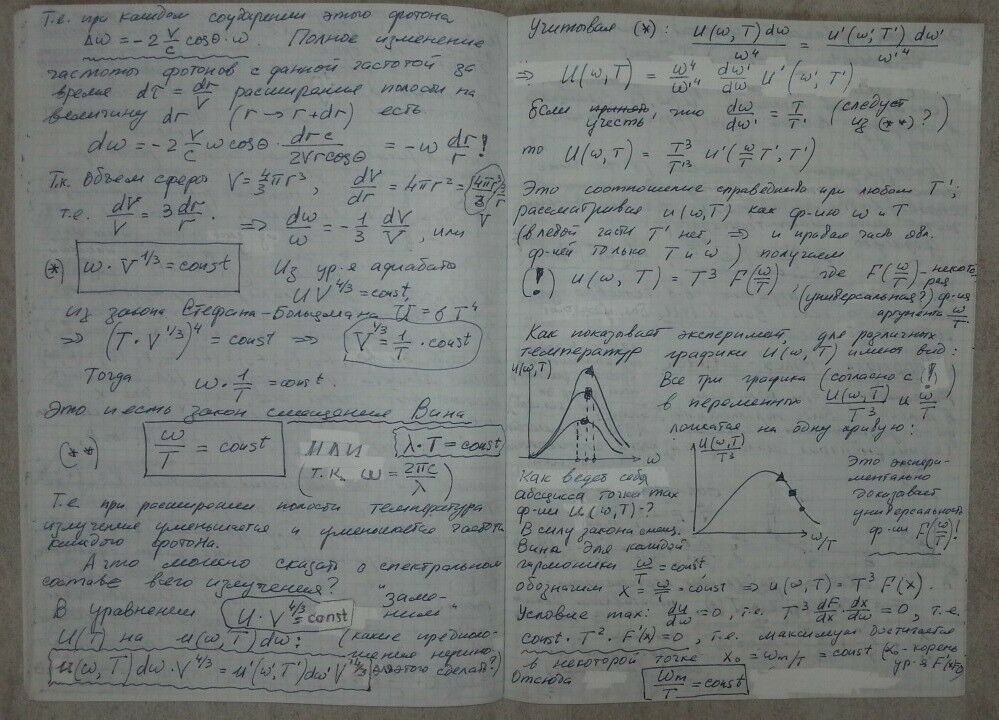 Т.е. при каждом соударении этого фотона
Δω = -2 v/c cosθ·ω. Полное изменение
частоты фотонов с данной частотой за
время dτ = dr/V расширения полости на
величину dr (r → r+dr) есть
dω = -2 v/c ω cosθ · dr c / 2Vr cosθ = -ω dr/r !
Т.к. Объем сферы V = 4/3 πr³, dV/dr = 4πr² = (4πr³/3) 3/r
V
т.е. dV/V = 3 dr/r. ⇒ dω/ω = -1/3 dV/V, или
(*) ω · V^1/3 = const Из ур-я адиабаты
U V^4/3 = const,
из закона Стефана-Больцмана U = σT⁴
⇒ (T · V^1/3)⁴ = const ⇒ V^1/3 = 1/T · const
Тогда ω · 1/T = const.
Это и есть закон смещения Вина
(**) ω/T = const ИЛИ λ·T = const
(т.к. ω = 2πc/λ)
Т.е. при расширении полости температура
излучения уменьшается и уменьшается частота
каждого фотона.
А что можно сказать о спектральном
составе всего излучения?
В уравнении U · V^4/3 = const "заме-
ним"
U(T) на u(ω,T)dω: (какие предполо-
жения нужно
u(ω,T)dω·V^4/3 = u'(ω',T')dω'V'^4/3 для этого сделать?)
Учитывая (*): U(ω,T)dω/ω⁴ = U'(ω',T')dω'/ω'⁴
⇒ U(ω,T) = ω⁴/ω'⁴ dω'/dω U'(ω',T')
если учесть, что dω/dω' = T/T' (следует
из (**)?)
то U(ω,T) = T³/T'³ U'(ω/T T', T')
Это соотношение справедливо при любом T';
рассматривая u(ω,T) как ф-ию ω и T
(в левой части T' нет, ⇒ и правая часть явл.
ф-ией только T и ω) получаем
(!) U(ω,T) = T³ F(ω/T), где F(ω/T) - некото-
рая
(универсальная?) ф-ия
аргумента ω/T.
Как показывает эксперимент, для различных
температур графики U(ω,T) имеют вид:
U(ω,T)
ω
Все три графика (согласно с (!))
в переменных U(ω,T)/T³ и ω/T
ложатся на одну кривую:
U(ω,T)/T³
ω/T
Это экспери-
ментально
доказывает
универсальность
ф-ии F(ω/T)!
Как ведет себя
абсцисса точки max
ф-ии U(ω,T)-?
В силу закона смещ.
Вина для каждой
гармоники ω/T = const
обозначим x = ω/T = const ⇒ u(ω,T) = T³ F(x).
Условие max: du/dω = 0, т.е. T³ dF/dx · dx/dω = 0, т.е.
const · T² · F'(x) = 0, т.е. максимум достигается
в некоторой точке x₀ = ωm/T = const (x₀ - корень
ур-я F'(x)=0)
Отсюда ωm/T = const